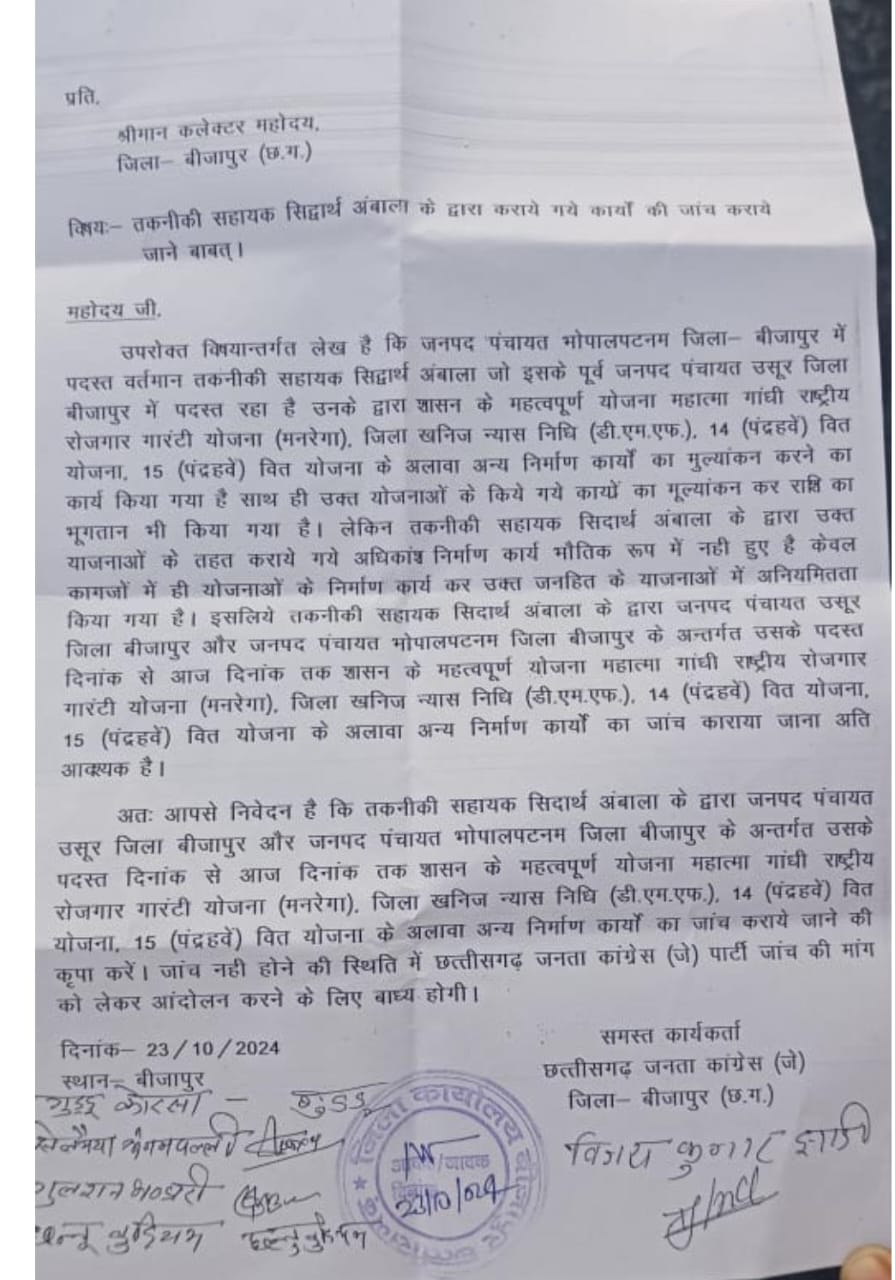 प्रति,
श्रीमान कलेक्टर महोदय,
जिला– बीजापुर (छ.ग.)
विषयः– तकनीकी सहायक सिद्वार्थ अंबाला के द्वारा कराये गये कार्यों की जांच कराये
जाने बाबत्।
महोदय जी,
उपरोक्त विषयान्तर्गत लेख है कि जनपद पंचायत भोपालपटनम जिला– बीजापुर में
पदस्त वर्तमान तकनीकी सहायक सिद्वार्थ अंबाला जो इसके पूर्व जनपद पंचायत उसूर जिला
बीजापुर में पदस्त रहा है उनके द्वारा शासन के महत्वपूर्ण योजना महात्मा गांधी राष्ट्रीय
रोजगार गारंटी योजना (मनरेगा), जिला खनिज न्यास निधि (डी.एम.एफ.), 14 (पंद्रहवें) वित
योजना, 15 (पंद्रहवें) वित योजना के अलावा अन्य निर्माण कार्यों का मुल्यांकन करने का
कार्य किया गया है साथ ही उक्त योजनाओं के किये गये कार्यो का मूल्यांकन कर राशि का
भूगतान भी किया गया है। लेकिन तकनीकी सहायक सिदार्थ अंबाला के द्वारा उक्त
याजनाओं के तहत कराये गये अधिकांश निर्माण कार्य भौतिक रूप में नही हुए है केवल
कागजों में ही योजनाओं के निर्माण कार्य कर उक्त जनहित के याजनाओं में अनियमितता
किया गया है। इसलिये तकनीकी सहायक सिदार्थ अंबाला के द्वारा जनपद पंचायत उसूर
जिला बीजापुर और जनपद पंचायत भोपालपटनम जिला बीजापुर के अन्तर्गत उसके पदस्त
दिनांक से आज दिनांक तक शासन के महत्वपूर्ण योजना महात्मा गांधी राष्ट्रीय रोजगार
गारंटी योजना (मनरेगा), जिला खनिज न्यास निधि (डी.एम.एफ.), 14 (पंद्रहवें) वित योजना,
15 (पंद्रहवें) वित योजना के अलावा अन्य निर्माण कार्यों का जांच काराया जाना अति
आवश्यक है।
अतः आपसे निवेदन है कि तकनीकी सहायक सिदार्थ अंबाला के द्वारा जनपद पंचायत
उसूर जिला बीजापुर और जनपद पंचायत भोपालपटनम जिला बीजापुर के अन्तर्गत उसके
पदस्त दिनांक से आज दिनांक तक शासन के महत्वपूर्ण योजना महात्मा गांधी राष्ट्रीय
रोजगार गारंटी योजना (मनरेगा), जिला खनिज न्यास निधि (डी.एम.एफ.), 14 (पंद्रहवें) वित
योजना, 15 (पंद्रहवें) वित योजना के अलावा अन्य निर्माण कार्यों का जांच कराये जाने की
कृपा करें। जांच नही होने की स्थिति में छत्तीसगढ़ जनता कांग्रेस (जे) पार्टी जांच की मांग
को लेकर आंदोलन करने के लिए बाध्य होगी।
दिनांक– 23/10/2024
स्थान– बीजापुर
समस्त कार्यकर्ता
छत्तीसगढ़ जनता कांग्रेस (जे)
जिला– बीजापुर (छ.ग.)
गुड्डू कोरसा – गुड्डू
विजय कुमार झाड़ी
जिला कार्यालय बीजापुर
आवक/जावक
दिनांक
23/10/024